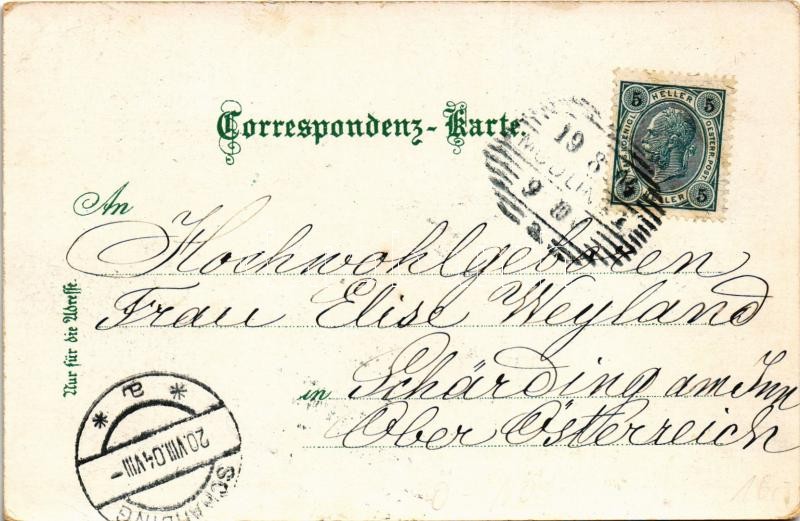 Correspondenz-Karte.
5 HELLER 5
KAIS. KOENIGL. OESTERR. POST.
5 HELLER 5
19 8
9 10
An
Hochwohlgeboren
Frau Elise Weyland
in Schärding am Inn
Ober Österreich
Nur für die Adresse.
* B *
20.VIII.04.VIII-
SCHÄRDING